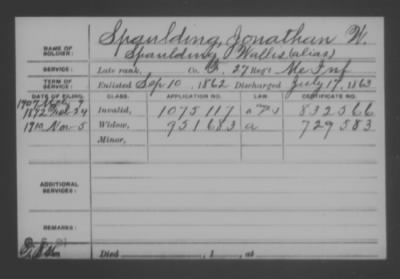 Spaulding, Jonathan W.
NAME OF SOLDIER: Spaulding, Wallis (alias)
SERVICE: Late rank, Co. G, 27 Reg't Me Inf
TERM OF SERVICE: Enlisted Sep 10, 1862 Discharged July 17, 1863
DATE OF FILING. CLASS. APPLICATION NO. LAW. CERTIFICATE NO.
1907 9
1892 24 Invalid, 1075117 832566
1910 Nov-5 Widow, 951683 a 729583
Minor,
ADDITIONAL SERVICES:
REMARKS:
Died , 1 , at